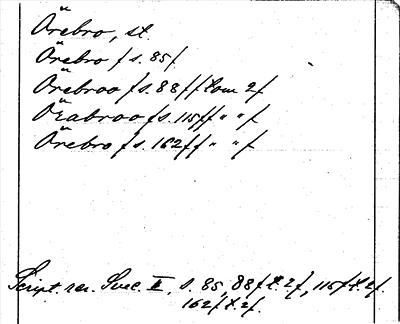 Örebro, st.
Örebro (s. 85)
Örebroo (s. 88 ff tom. 2)
Örabroo (s. 115 ff " " )
Örebro (s. 162 ff " " )
Script. rer. Svec. II, s. 85, 88 f t. 2, 115 f t. 2.
162 f t. 2.